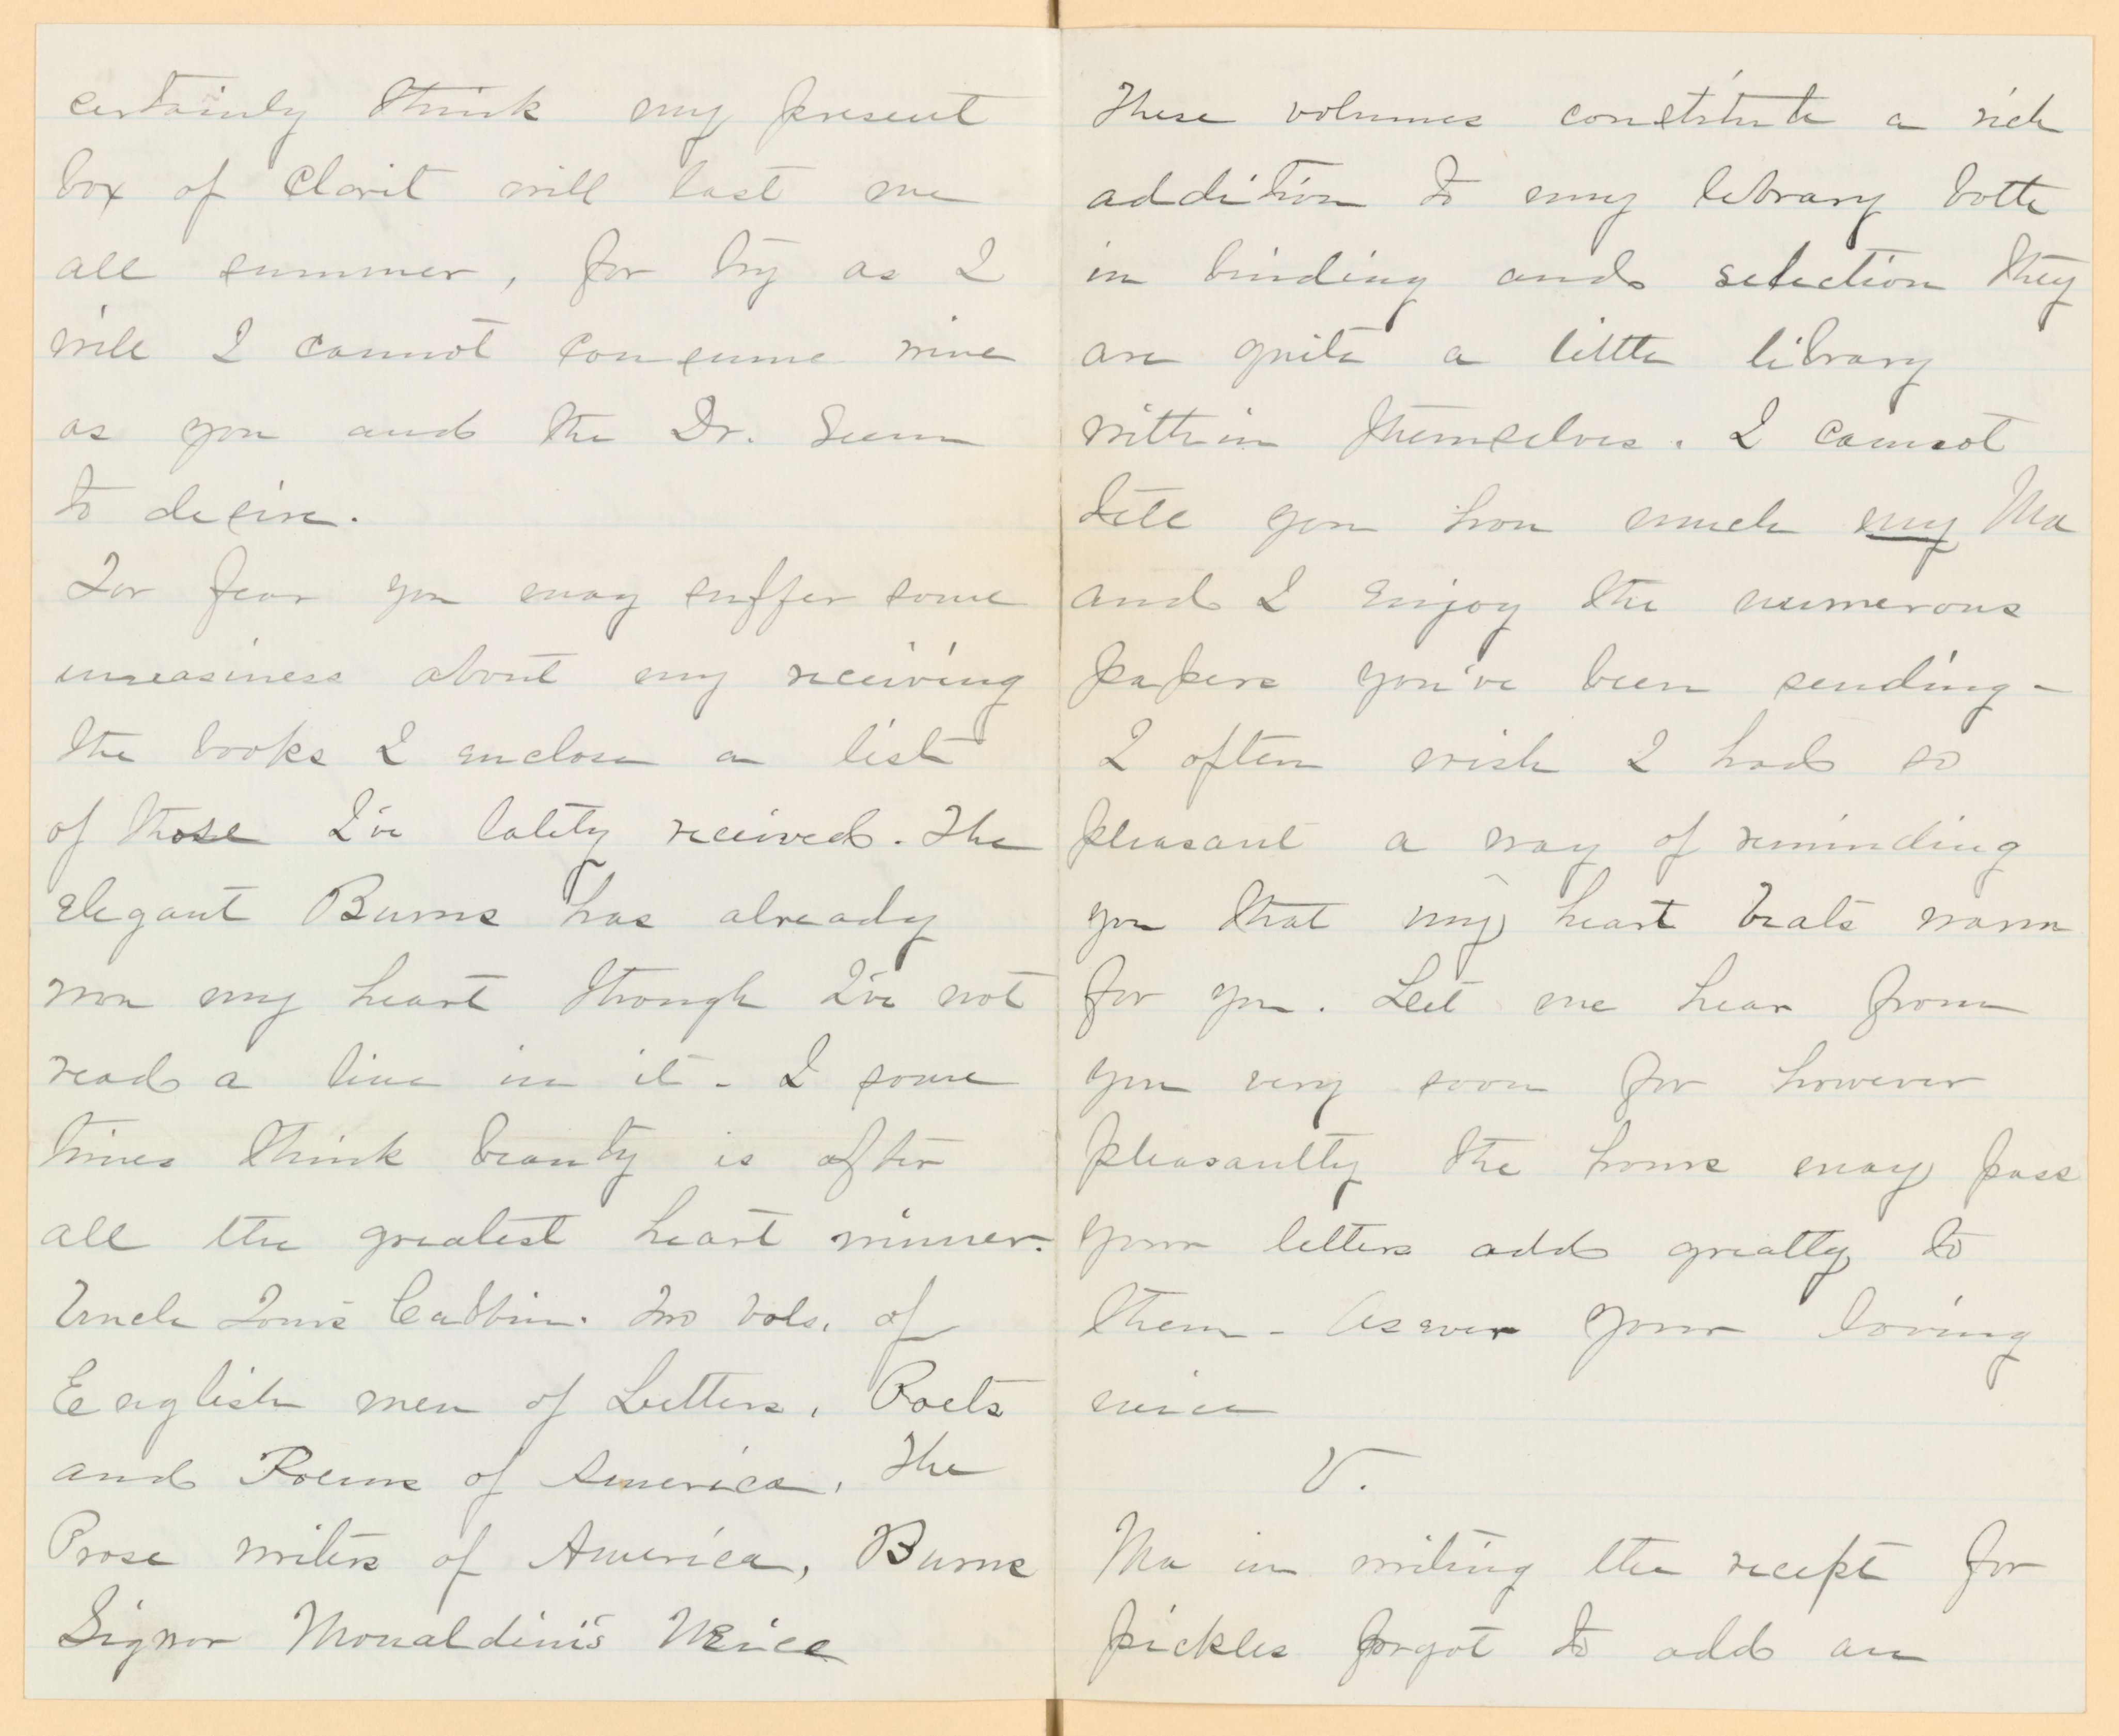 certainly think my present
box of Clarit will last me
all summer, for try as I
will I cannot consume wine
as you and the Dr. seem
to desire.
For fear you may suffer some
uneasiness about my receiving
the books I enclose a list
of those I've lately received. The
elegant Burns has already
won my heart though I've not
read a line in it - I some
times think beauty is after
all the greatest heart winner.
Uncle Tom's Cabbin. Two Vols. of
English men of Letters, Poets
and Poems of America, The
Prose writers of America, Burns
Signor Monaldini's Niece
These volumes constitute a rich
addition to my library both
in binding and selection they
are quite a little library
within themselves. I cannot
tell you how much my Ma
and I enjoy the numerous
papers you've been sending -
I often wish I had so
pleasant a way of reminding
you that my heart beats warm
for you. Let me hear from
you very soon for however
pleasantly the hours may pass
your letters add greatly to
them - As ever your loving
niece
V.
Ma in writing the recept for
pickles forgot to add an